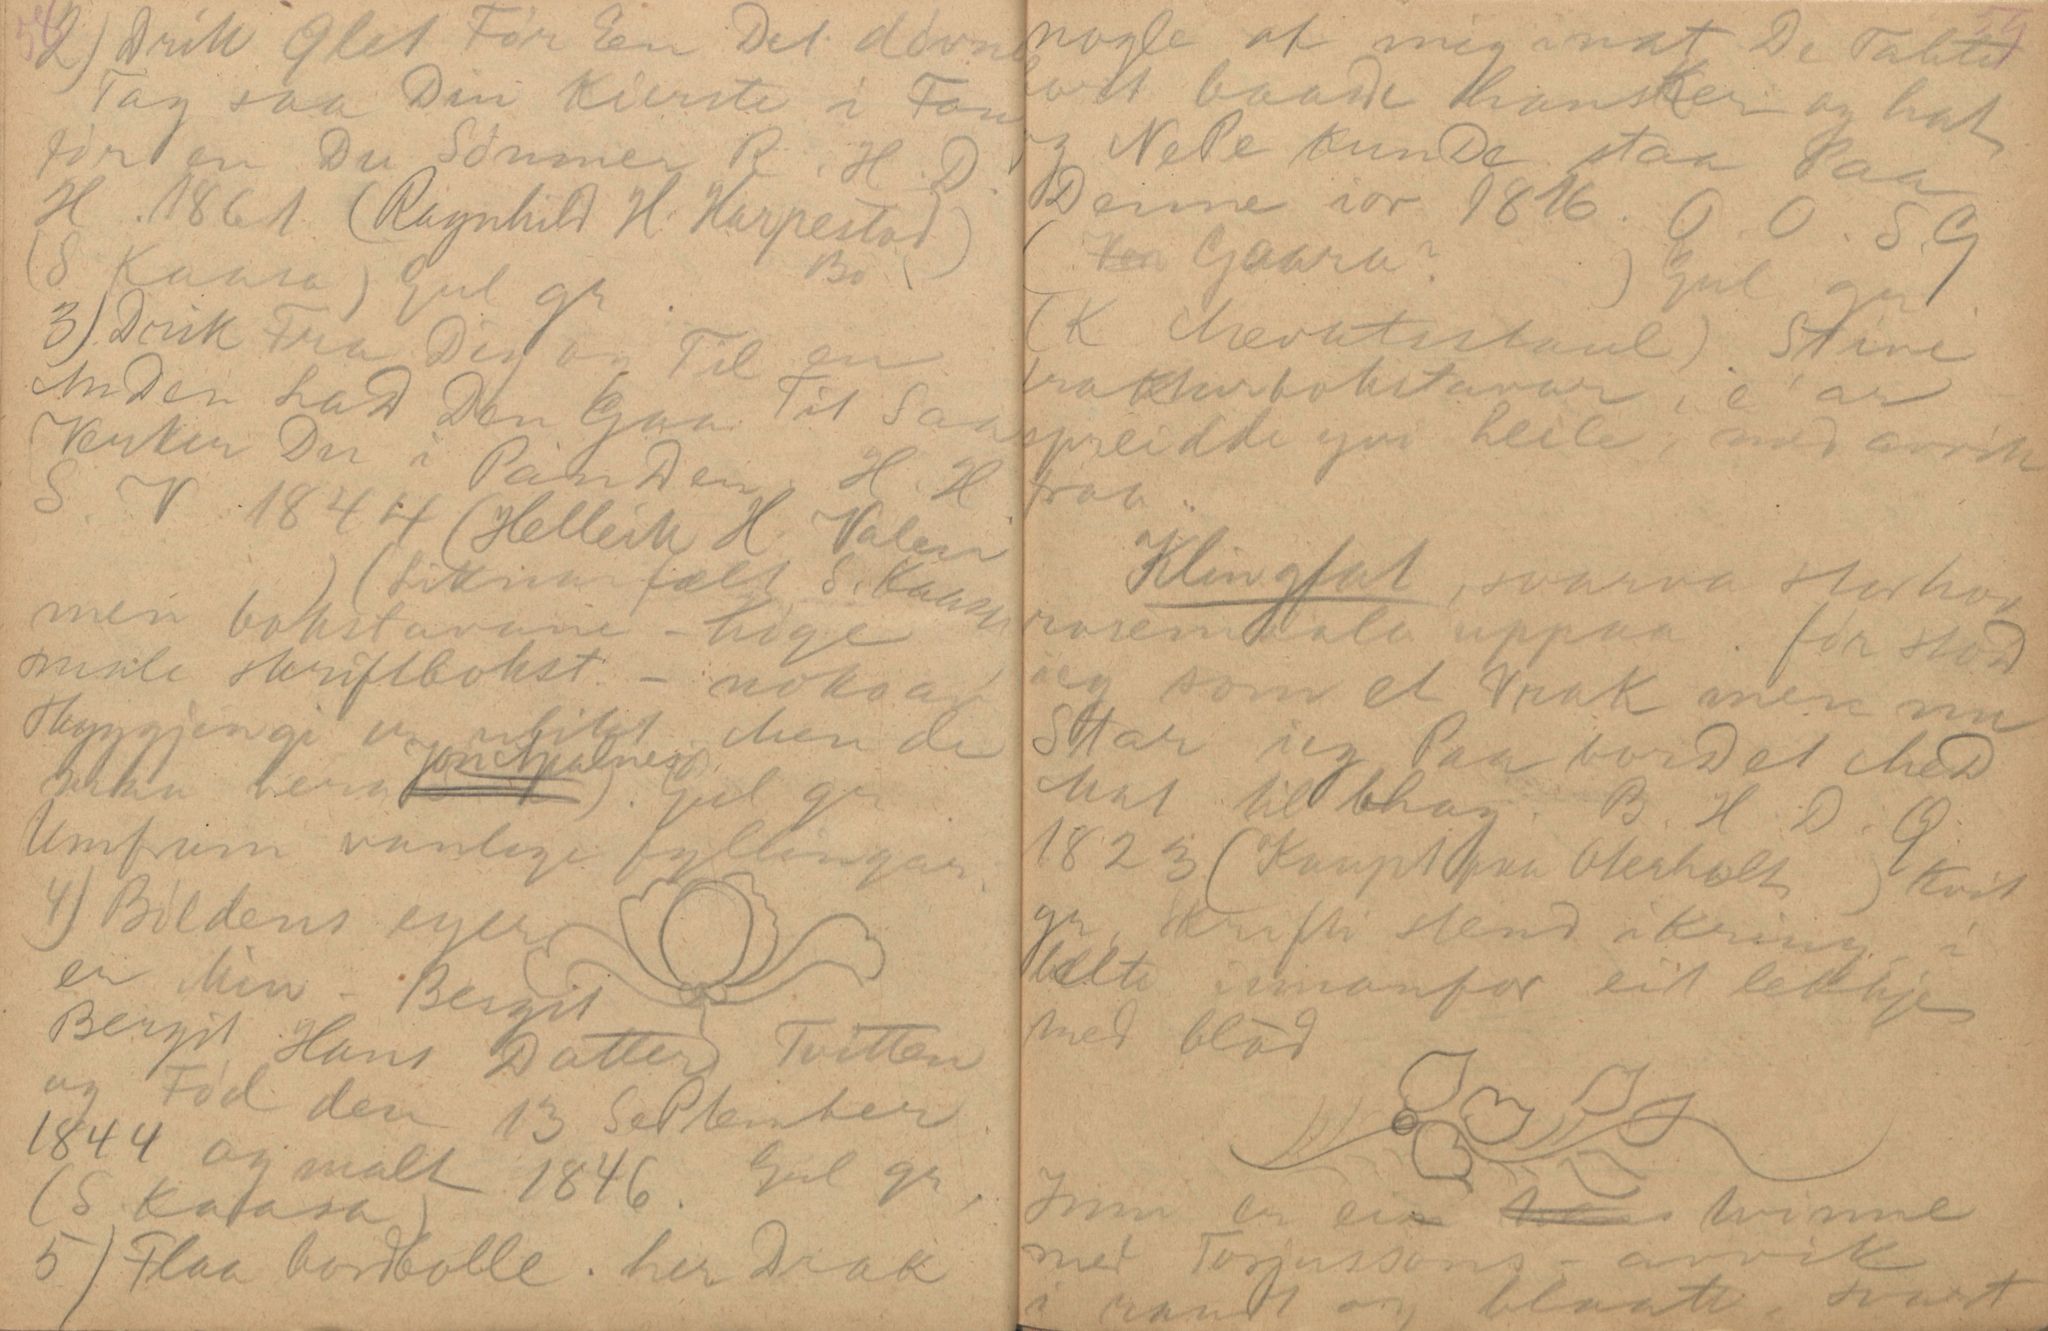 2) Drik Glet Før Een Det døvne
Tag saa Din Kierste i Fan
før en Du Sømmer R. H. D.
H. 1861 (Ragnhild H. Harpestad)
Bø
(S Kaasa) Gul gr.
3) Drik Fra Dig og Til en
Anden Lad Den Gaa Til Saa
Verker Du i PanDen. H. H
S. V. 1844 (Helleik H. Valen
) (Liknar fælt S. Kaasa
men bokstavane - høge
smale skriftbokst. - nokoav
skyggjingi
Jon Mjalnes
vera). Gul gr
Umfram vanlege fyllingar.
4) Böldens eyer
er Min - Bergit
Bergit Hans Datter Tvitten
og Fød den 13 SePtember
1844 og malt 1846. Gul gr,
(S Kaasa)
5) Flaa bordbolle. her Drak
59
nogle af mig inat De Tabte
bort baade hansker og hat
og NePe kunde staa Paa
Denne ior 1816. O. O. S. G
( Gaara? ) Gul gr
(K ) Stive
frakturbokstavar, e' ar
spreidde yvi heile, med avvik
fraa..
Klingfat, svarva
rosemaala uppaa. før stod
ieg som et Vrak men nu
Star ieg Paa bordet Med
Mat til bhag. B. H. D. G
1823 (Kaupt paa Oterholt ) Kvit
gr, skrifti stend ikring i
belte innanfor eit lekkje
med blad
Inn er ein kvinne
med Torjussons - avvik
i randt og blaatt, svart